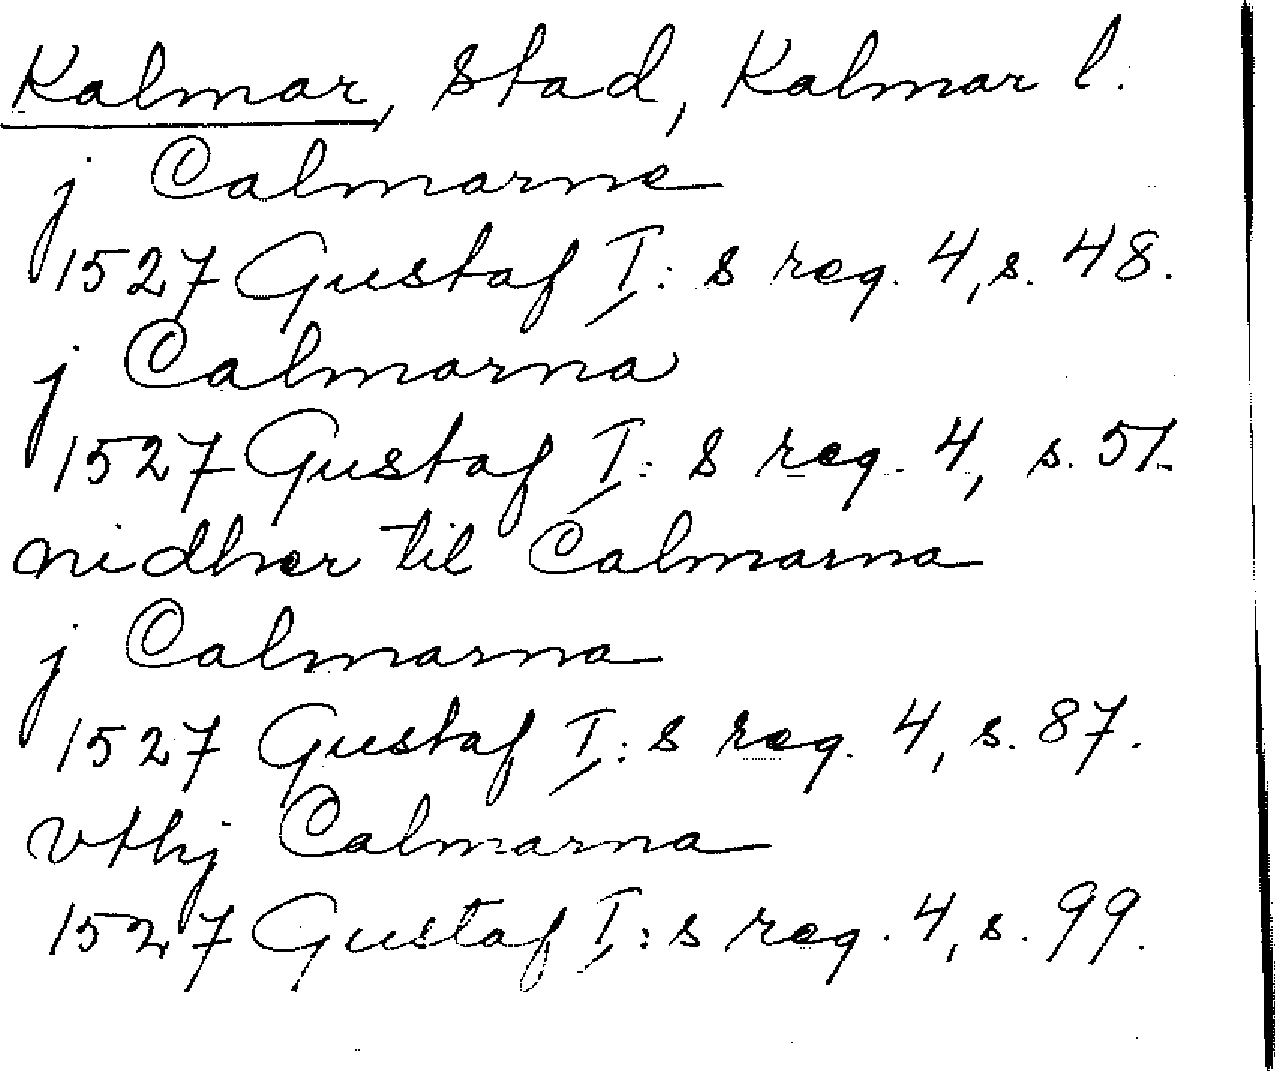 Kalmar, stad, Kalmar l.
j Calmarne
1527 Gustaf I:s reg. 4, s. 48.
j Calmarna
1527 Gustaf I:s reg. 4, s. 51.
nidher til Calmarna
j Calmarna
1527 Gustaf I:s reg. 4, s. 87.
vthj Calmarna
1527 Gustaf I:s reg. 4, s. 99.